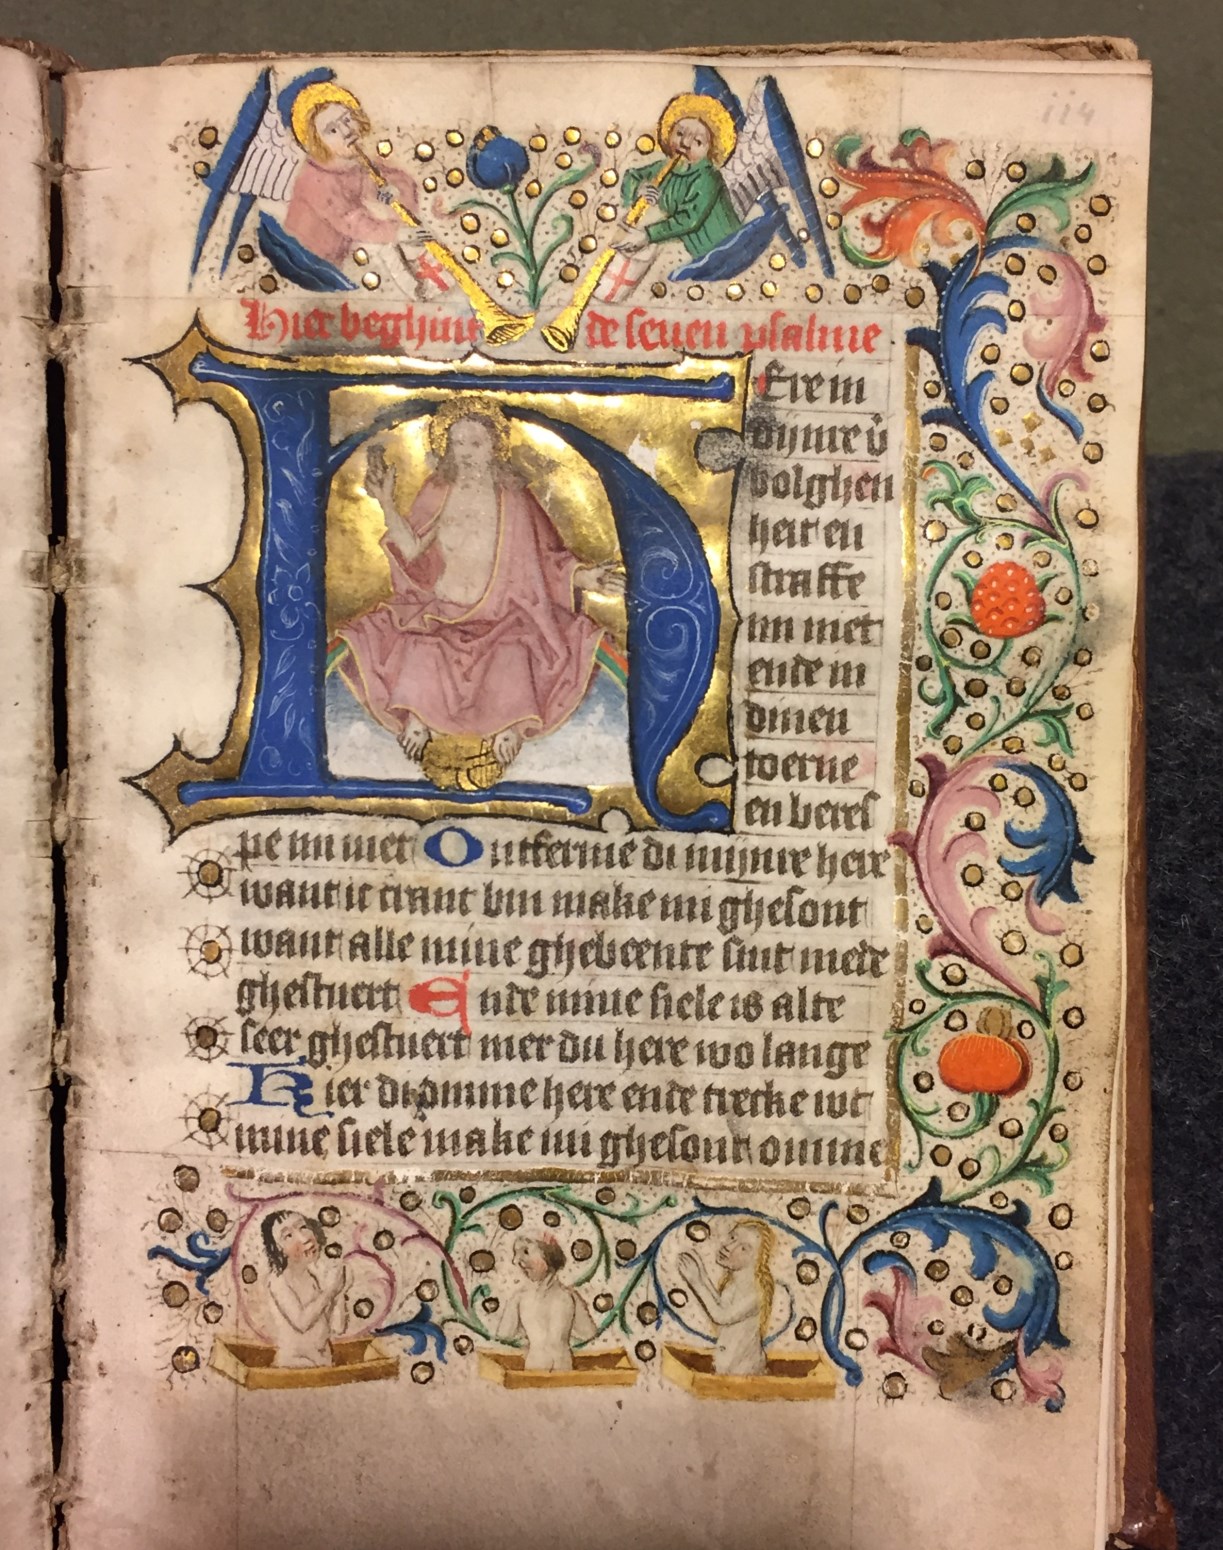 114
Hier beghint de seuen psalme
HEre in
dijnre v̄
bolghen
heit en
straffe
mi niet
ende in
dinen
toerne
en beres
pe mi niet Ontfermē di mijnre here
want ic cranc bin make mi ghesont
want alle mine ghebeente sint mede
ghestuert Ende mine siele is alte
seer ghestuert mer du here wo lange
Kier di omme here ende trecke wt
mine siele make mi ghesont omme